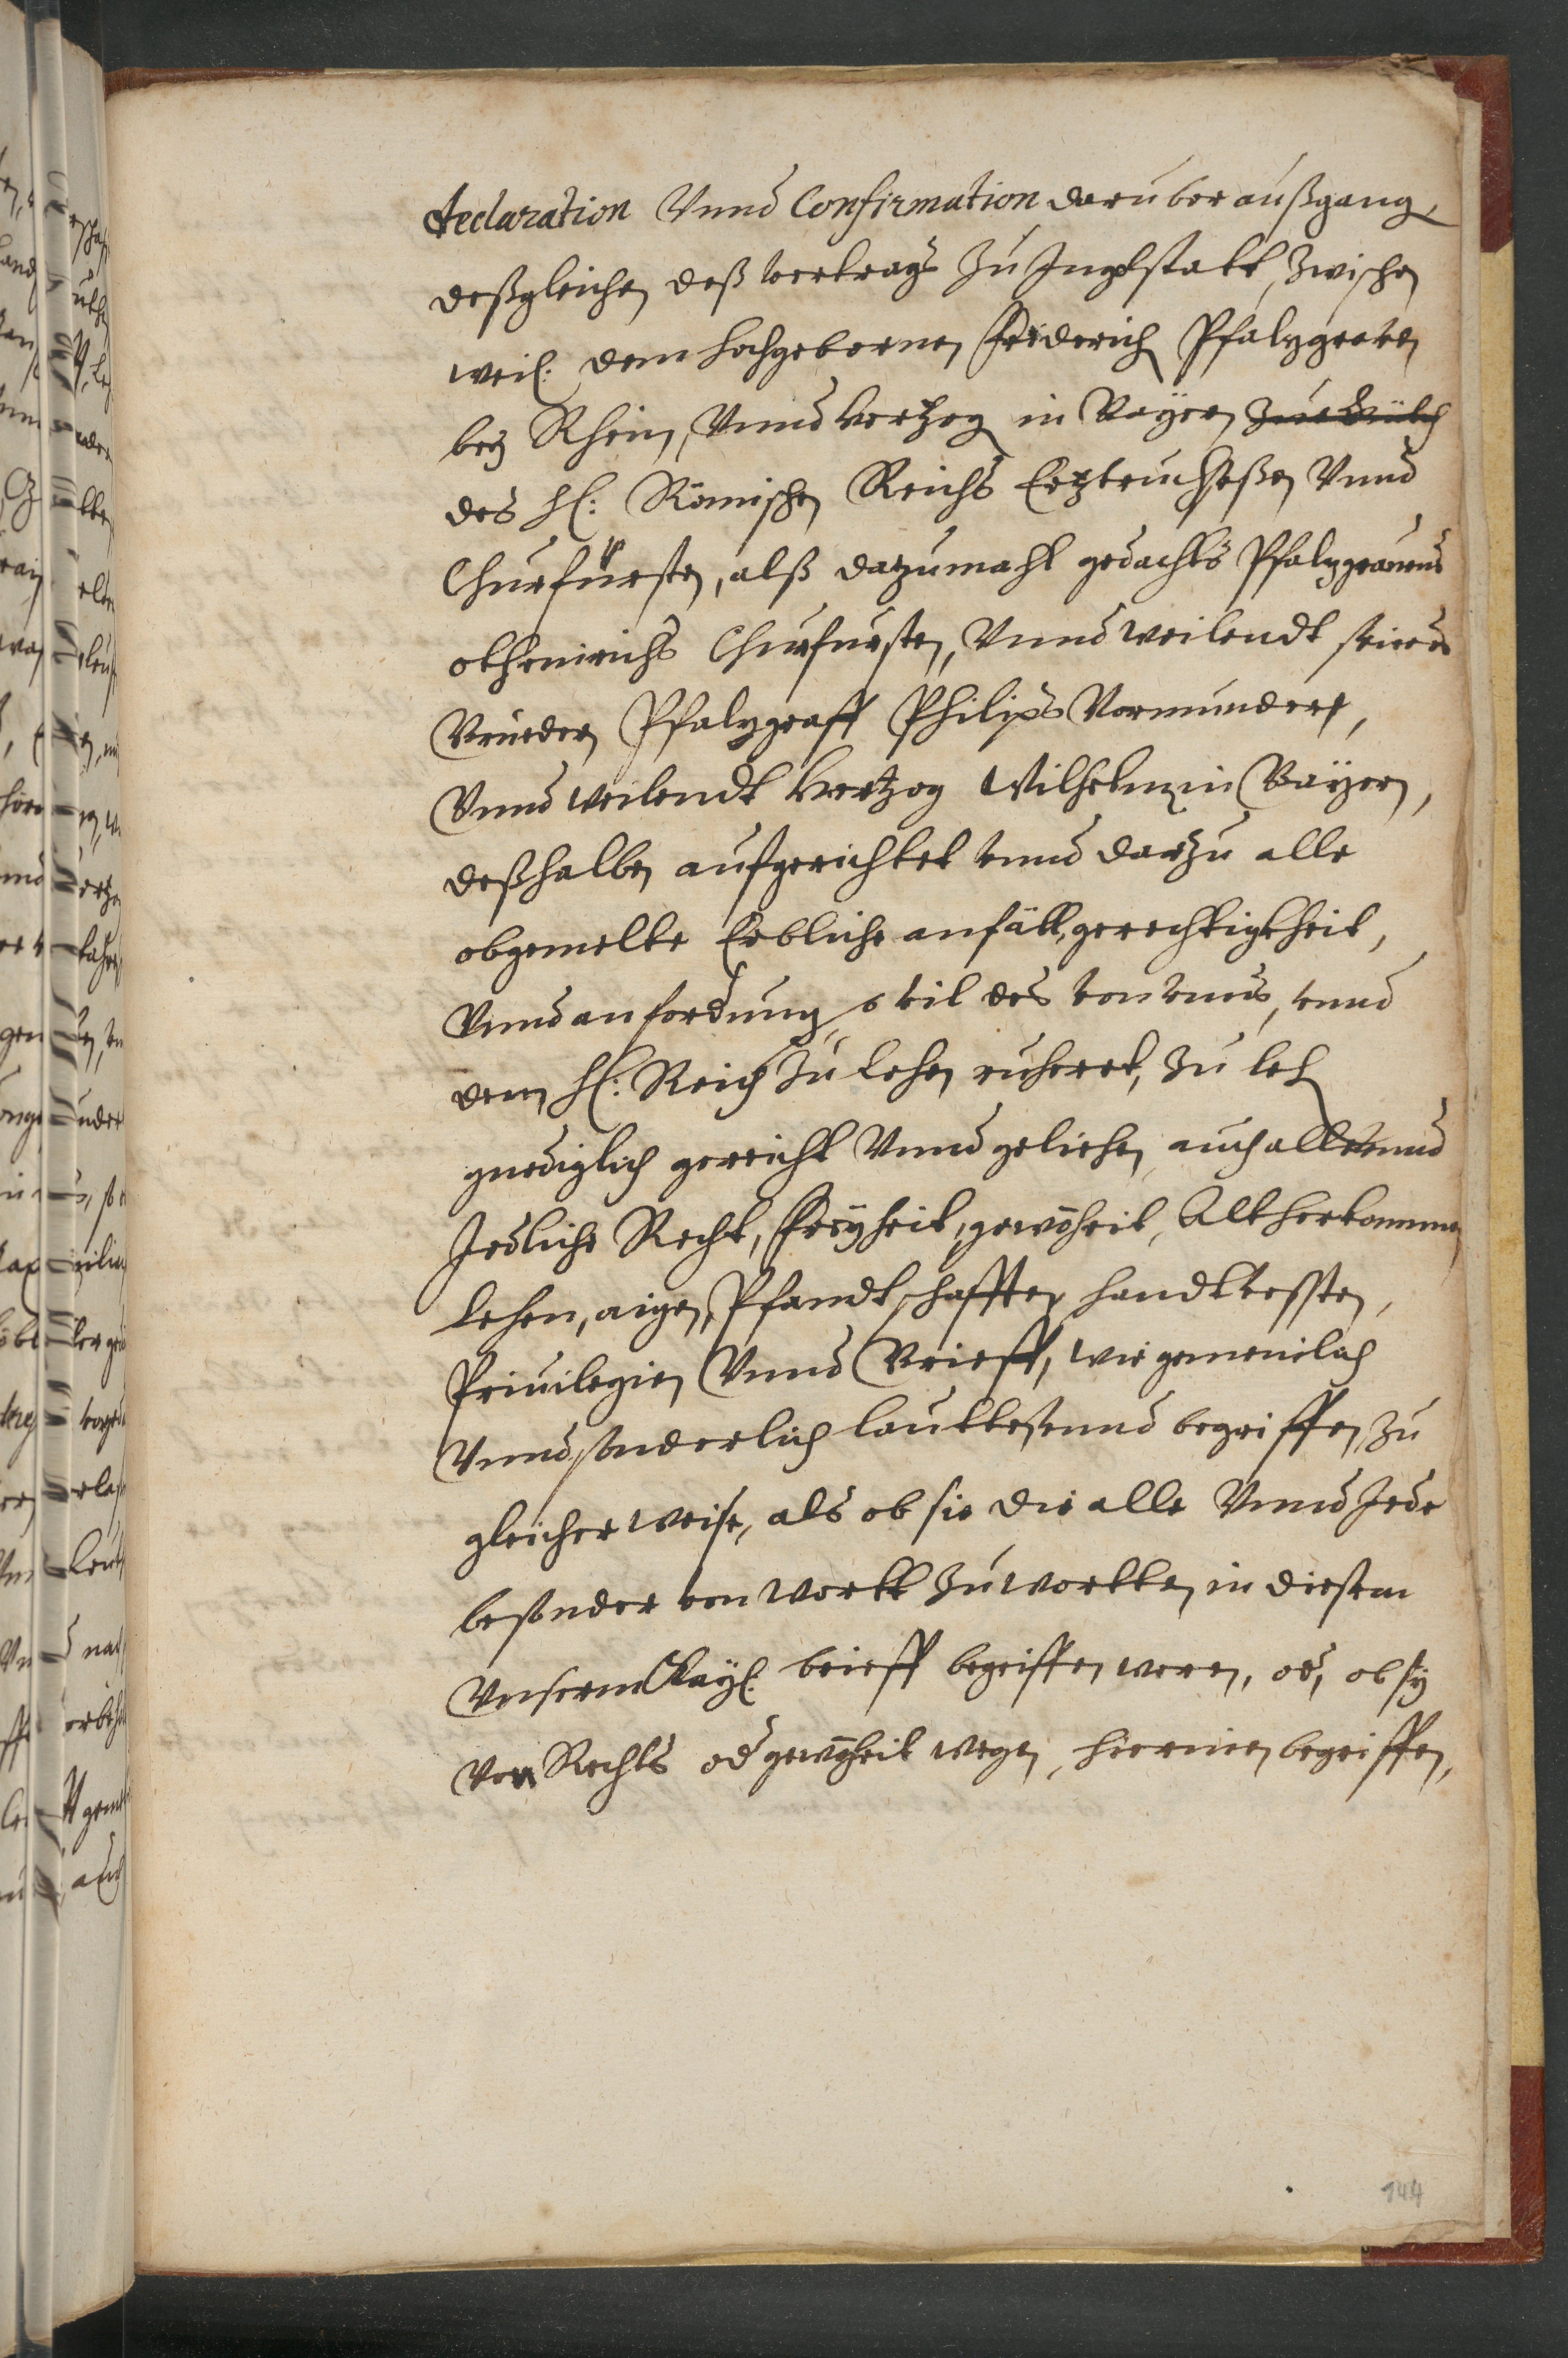 declaration Vnnd Confirmation daruber außgang,
deßgleichen deß vertrags zu Ingolstatt, zwischen
weil: dem hochgebornen Friderich Pfaltzgraven
bey Rhein, Vnnd Hertzog in Bayern
des H: Römischen Reichs Ertztruchseßen Vnnd
Churfürsten, alß datzumahl gedachts Pfaltzgrauens
othenrichs Churfursten, Vnnd weilendt seines
Brueders Pfaltzgraff Philips Vormunder,
Vnnd weilendt Hertzog Wilhelm in Bayern,
deßhalben aufgerichtet vnnd dartzu alle
obgemelte Erbliche anfäll, gerechtigkheit,
Vnnd anfordung, souil des von vnns, vnnd
dem H: Reich zu lehen ruheret, zu leh
gnediglich gereicht Vnnd geliehen, auch alle vnnd
Jedliche Recht, Freyheit, gewohnheit, Alt herkommen
lehen, aigen, Pfandtschafften, handtvessten,
Priuilegien Vnnd Brieff, wie gemeinlich
Vnnd sonderlich lauttest vnnd begriffen, zu
gleicher weise, als ob sie die alle Vnnd Jede
besonder von wortt zu wortten in diesem
Vnserm Kayl: brieff begriffen weren, od, ob sy
von Rechts od gewonheit wegen, hierinen begriffen,
144